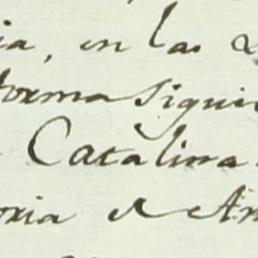 ia, en la
forma sigui
Catalina
oria de An